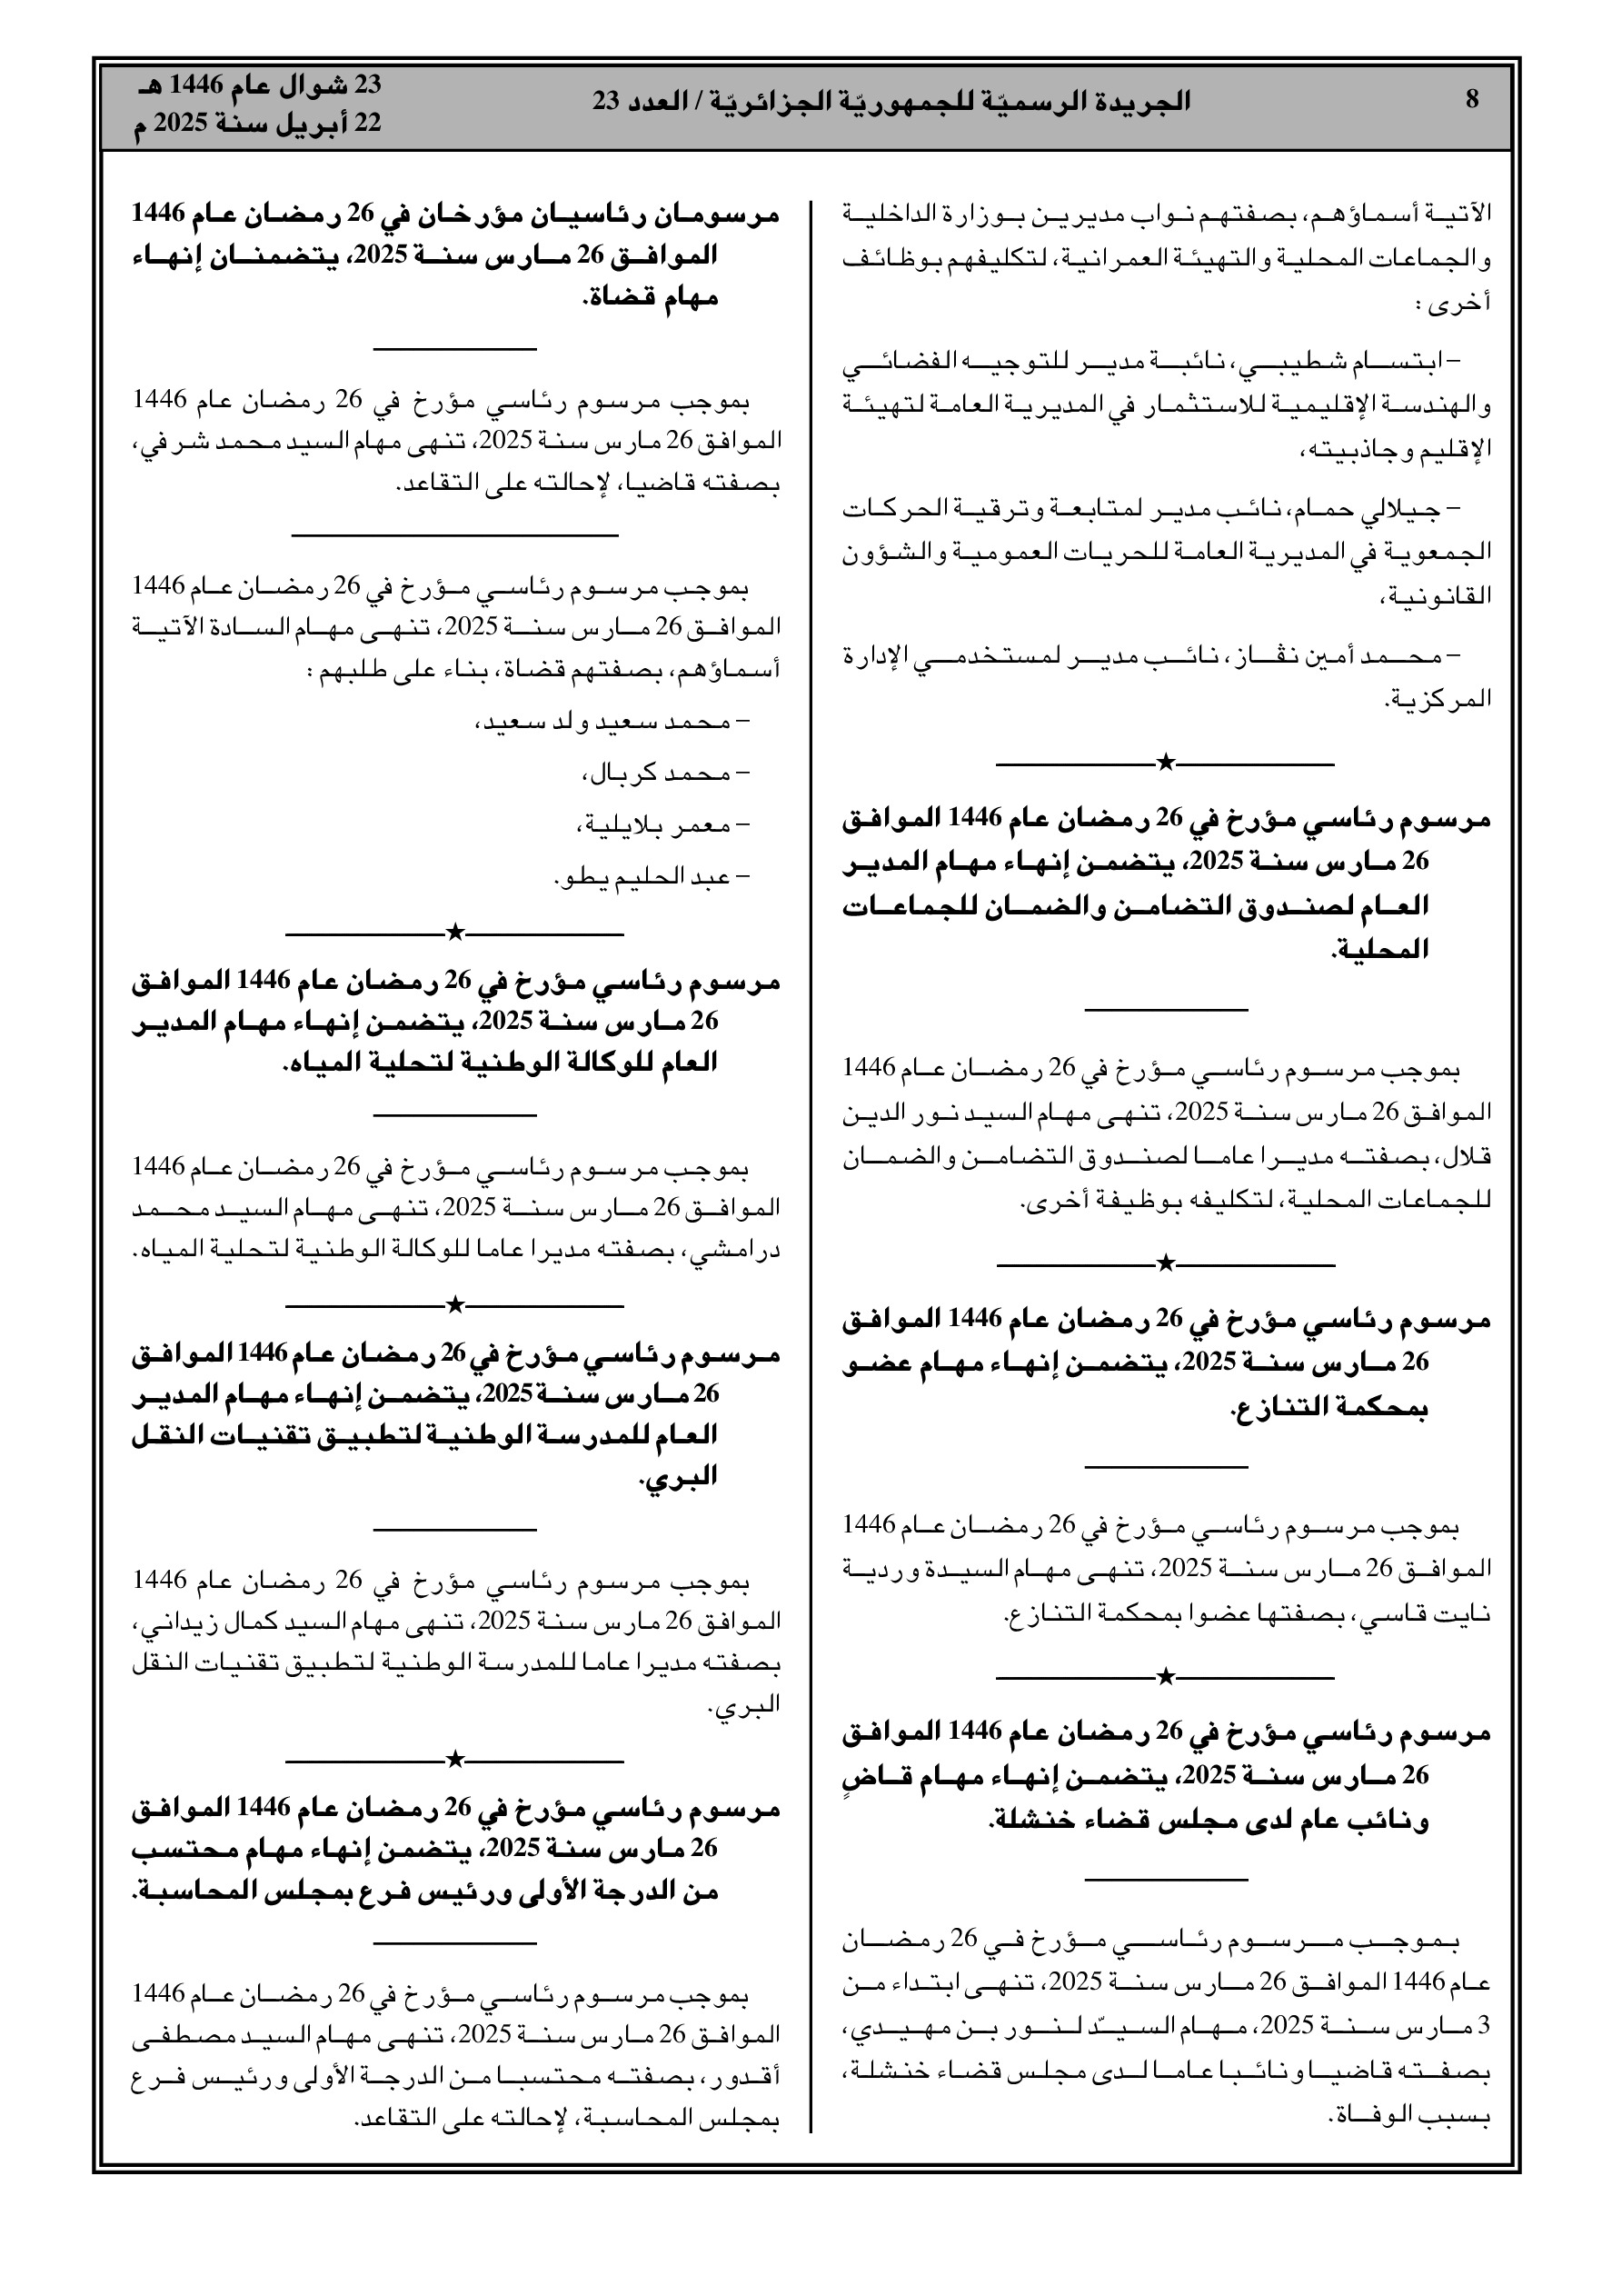 8
الجريدة الرسميّة للجمهوريّة الجزائريّة / العدد 23
23 شوال عام 1446 هـ
22 أبريل سنة 2025 م
الآتية أسماؤهم، بصفتهم نواب مديرين بوزارة الداخلية
والجماعات المحلية والتهيئة العمرانية، لتكليفهم بوظائف
أخرى :
– ابتسام شطيبي، نائبة مدير للتوجيه الفضائي
والهندسة الإقليمية للاستثمار في المديرية العامة لتهيئة
الإقليم وجاذبيته،
– جيلالي حمام، نائب مدير لمتابعة وترقية الحركات
الجمعوية في المديرية العامة للحريات العمومية والشؤون
القانونية،
– محمد أمين نڤاز، نائب مدير لمستخدمي الإدارة
المركزية.
مرسوم رئاسي مؤرخ في 26 رمضان عام 1446 الموافق
26 مارس سنة 2025، يتضمن إنهاء مهام المدير
العام لصندوق التضامن والضمان للجماعات
المحلية.
بموجب مرسوم رئاسي مؤرخ في 26 رمضان عام 1446
الموافق 26 مارس سنة 2025، تنهى مهام السيد نور الدين
قلال، بصفته مديرا عاما لصندوق التضامن والضمان
للجماعات المحلية، لتكليفه بوظيفة أخرى.
مرسوم رئاسي مؤرخ في 26 رمضان عام 1446 الموافق
26 مارس سنة 2025، يتضمن إنهاء مهام عضو
بمحكمة التنازع.
بموجب مرسوم رئاسي مؤرخ في 26 رمضان عام 1446
الموافق 26 مارس سنة 2025، تنهى مهام السيدة وردية
نايت قاسي، بصفتها عضوا بمحكمة التنازع.
مرسوم رئاسي مؤرخ في 26 رمضان عام 1446 الموافق
26 مارس سنة 2025، يتضمن إنهاء مهام قاضٍ
ونائب عام لدى مجلس قضاء خنشلة.
بموجب مرسوم رئاسي مؤرخ في 26 رمضان
عام 1446 الموافق 26 مارس سنة 2025، تنهى ابتداء من
3 مارس سنة 2025، مهام السيّد لنور بن مهيدي،
بصفته قاضيا ونائبا عاما لدى مجلس قضاء خنشلة،
بسبب الوفاة.
مرسومان رئاسيان مؤرخان في 26 رمضان عام 1446
الموافق 26 مارس سنة 2025، يتضمنان إنهاء
مهام قضاة.
بموجب مرسوم رئاسي مؤرخ في 26 رمضان عام 1446
الموافق 26 مارس سنة 2025، تنهى مهام السيد محمد شرفي،
بصفته قاضيا، لإحالته على التقاعد.
بموجب مرسوم رئاسي مؤرخ في 26 رمضان عام 1446
الموافق 26 مارس سنة 2025، تنهى مهام السادة الآتية
أسماؤهم، بصفتهم قضاة، بناء على طلبهم :
– محمد سعيد ولد سعيد،
– محمد كربال،
– معمر بلايلية،
– عبد الحليم يطو.
مرسوم رئاسي مؤرخ في 26 رمضان عام 1446 الموافق
26 مارس سنة 2025، يتضمن إنهاء مهام المدير
العام للوكالة الوطنية لتحلية المياه.
بموجب مرسوم رئاسي مؤرخ في 26 رمضان عام 1446
الموافق 26 مارس سنة 2025، تنهى مهام السيد محمد
درامشي، بصفته مديرا عاما للوكالة الوطنية لتحلية المياه.
مرسوم رئاسي مؤرخ في 26 رمضان عام 1446 الموافق
26 مارس سنة 2025، يتضمن إنهاء مهام المدير
العام للمدرسة الوطنية لتطبيق تقنيات النقل
البري.
بموجب مرسوم رئاسي مؤرخ في 26 رمضان عام 1446
الموافق 26 مارس سنة 2025، تنهى مهام السيد كمال زيداني،
بصفته مديرا عاما للمدرسة الوطنية لتطبيق تقنيات النقل
البري.
مرسوم رئاسي مؤرخ في 26 رمضان عام 1446 الموافق
26 مارس سنة 2025، يتضمن إنهاء مهام محتسب
من الدرجة الأولى ورئيس فرع بمجلس المحاسبة.
بموجب مرسوم رئاسي مؤرخ في 26 رمضان عام 1446
الموافق 26 مارس سنة 2025، تنهى مهام السيد مصطفى
أقدور، بصفته محتسبا من الدرجة الأولى ورئيس فرع
بمجلس المحاسبة، لإحالته على التقاعد.